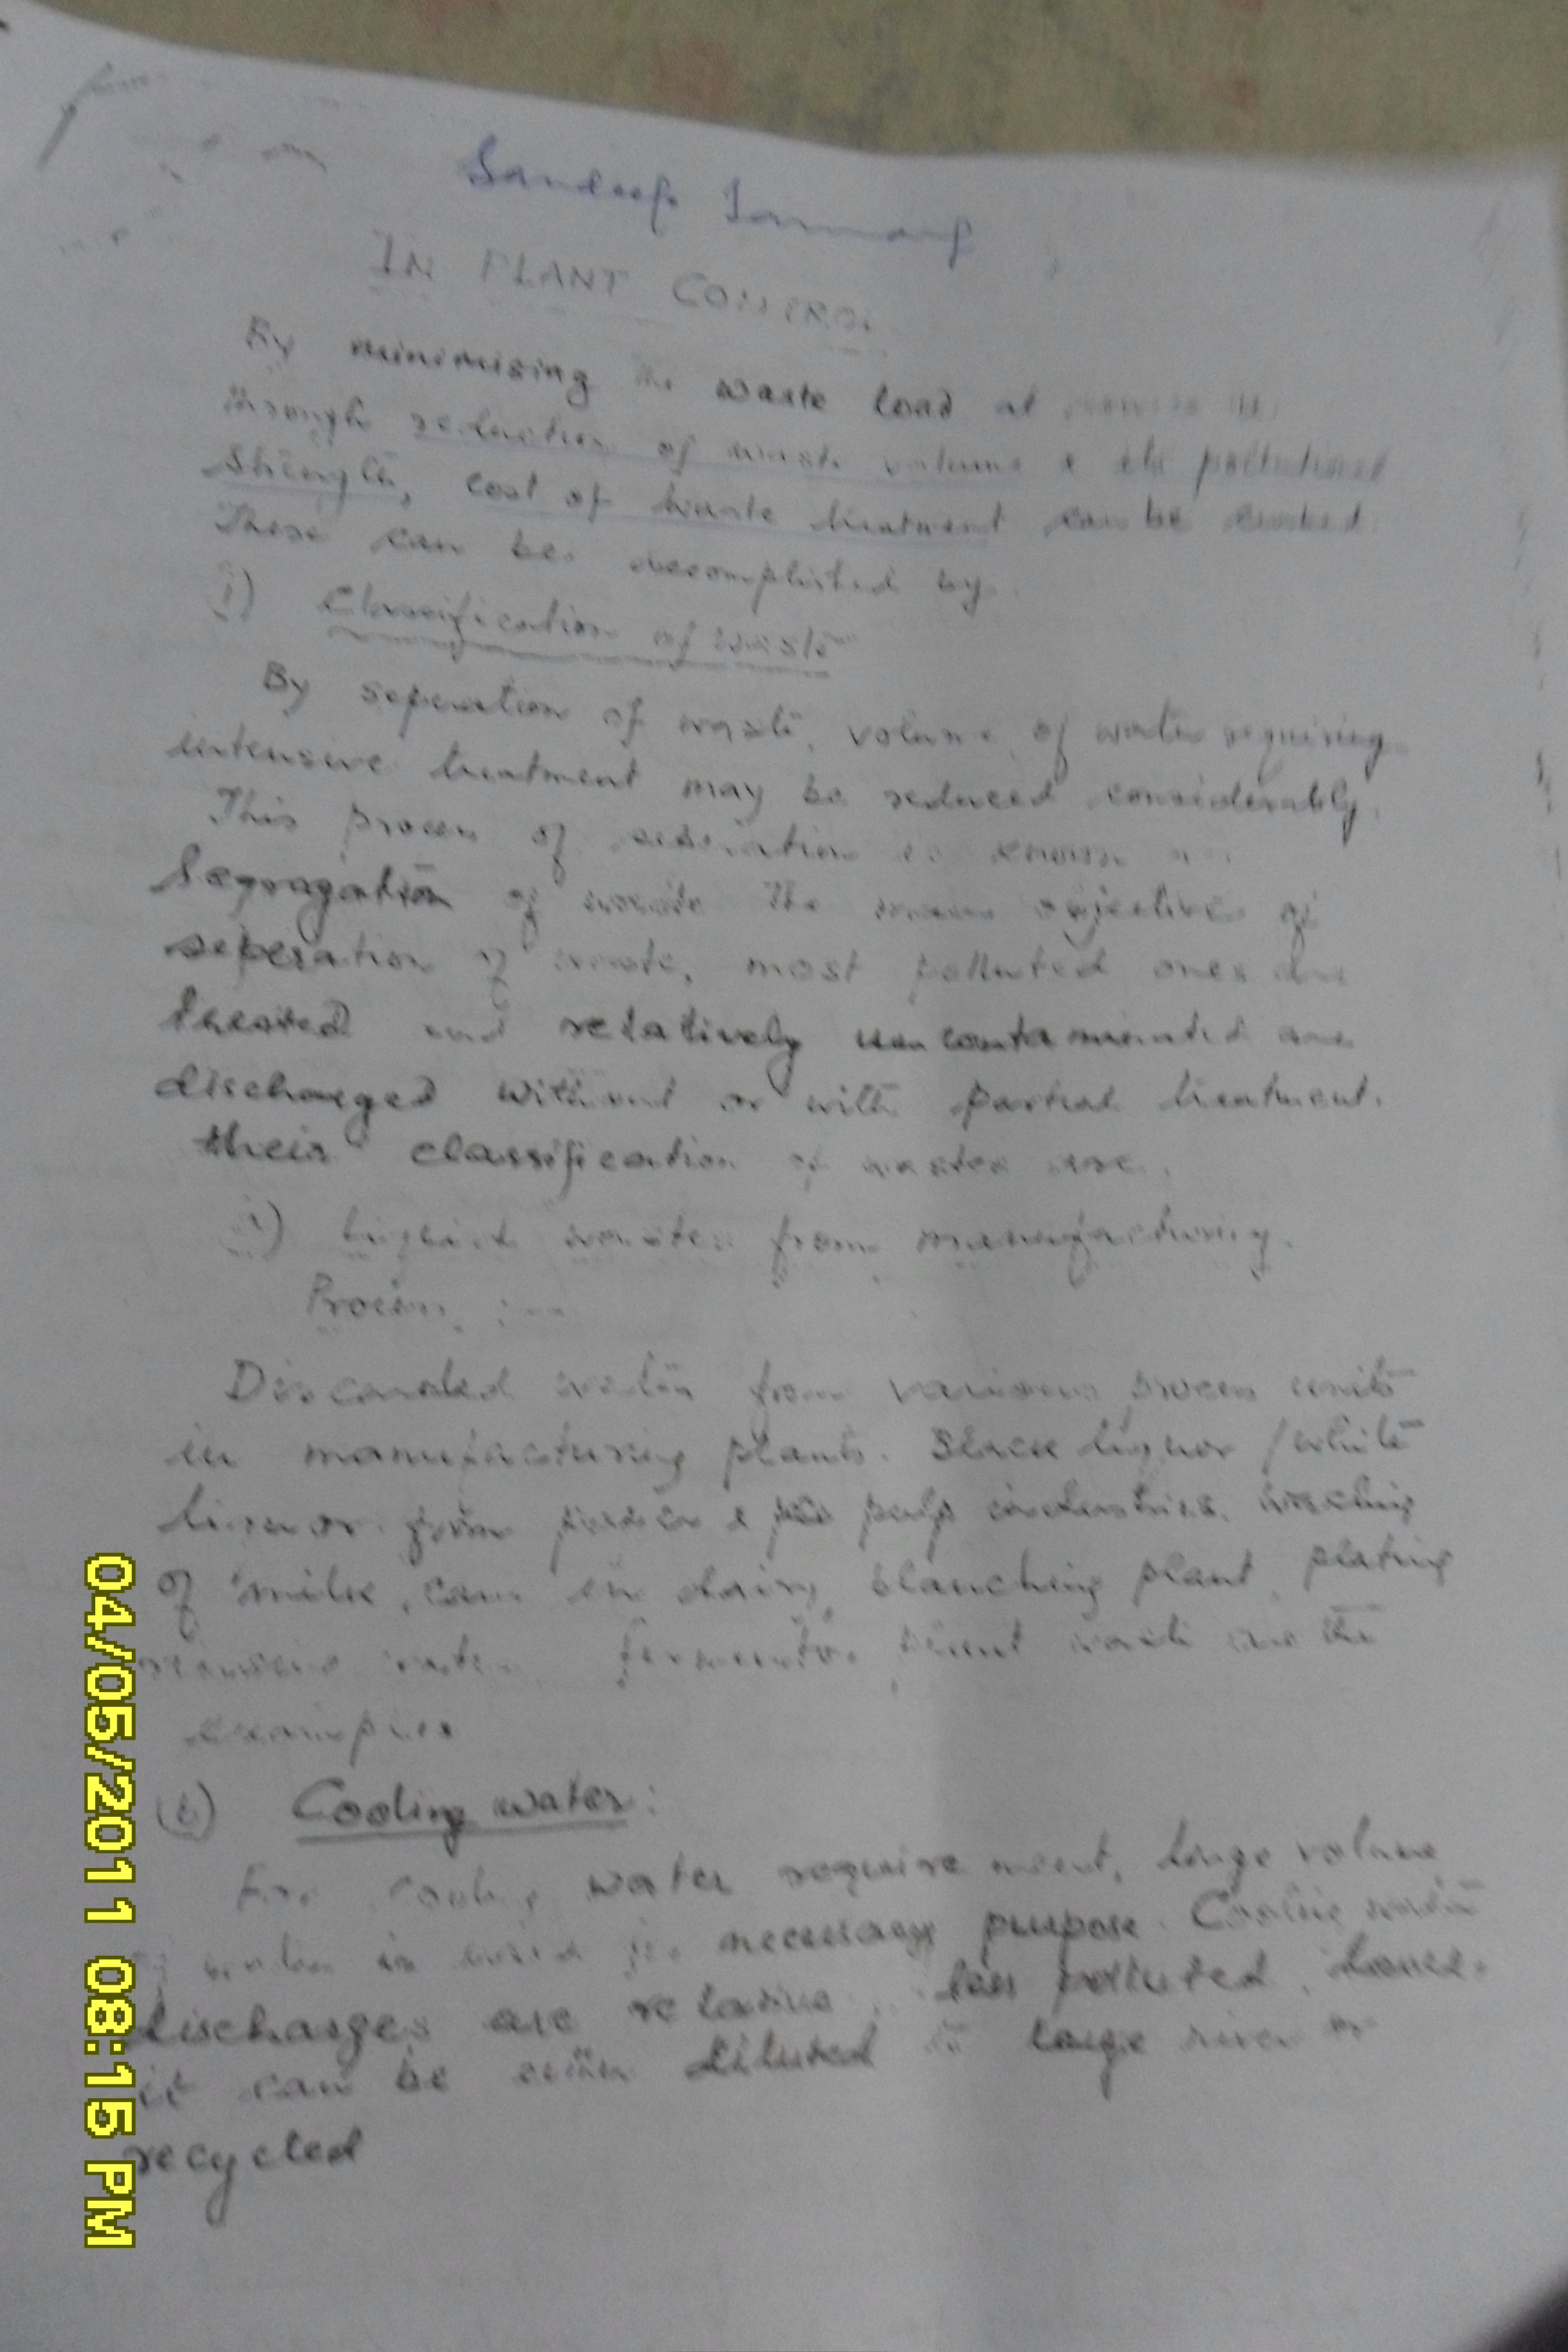 Sandeep
IN PLANT CONTROL
By minimising the waste load at
through reduction of waste volume & its pollutional
Strength, cost of waste treatment can be
These can be accomplished by
i) Classification of waste
By seperation of waste, volume of water requiring
intensive treatment may be reduced considerably.
This process of seperation is known as
Segragation of waste The main objectives of
seperation of waste, most polluted ones are
treated and relatively uncontaminated are
discharged without or with partial treatment.
their classification of wastes are.
Liquid wastes from manufacturing
Process :-
Discarded water from various process units
in manufacturing plants. Black liquor / white
liquor from paper & pulp industries. washing
of milk can in dairy, blanching plant, plating
water fermentor spent wash are the
examples
(b) Cooling water:
For cooling water requirement, large volume
of water is used for necessary purpose. Cooling water
discharges are relative less polluted, hence.
it can be either diluted in large river or
recycled
04/05/2011 08:15 PM